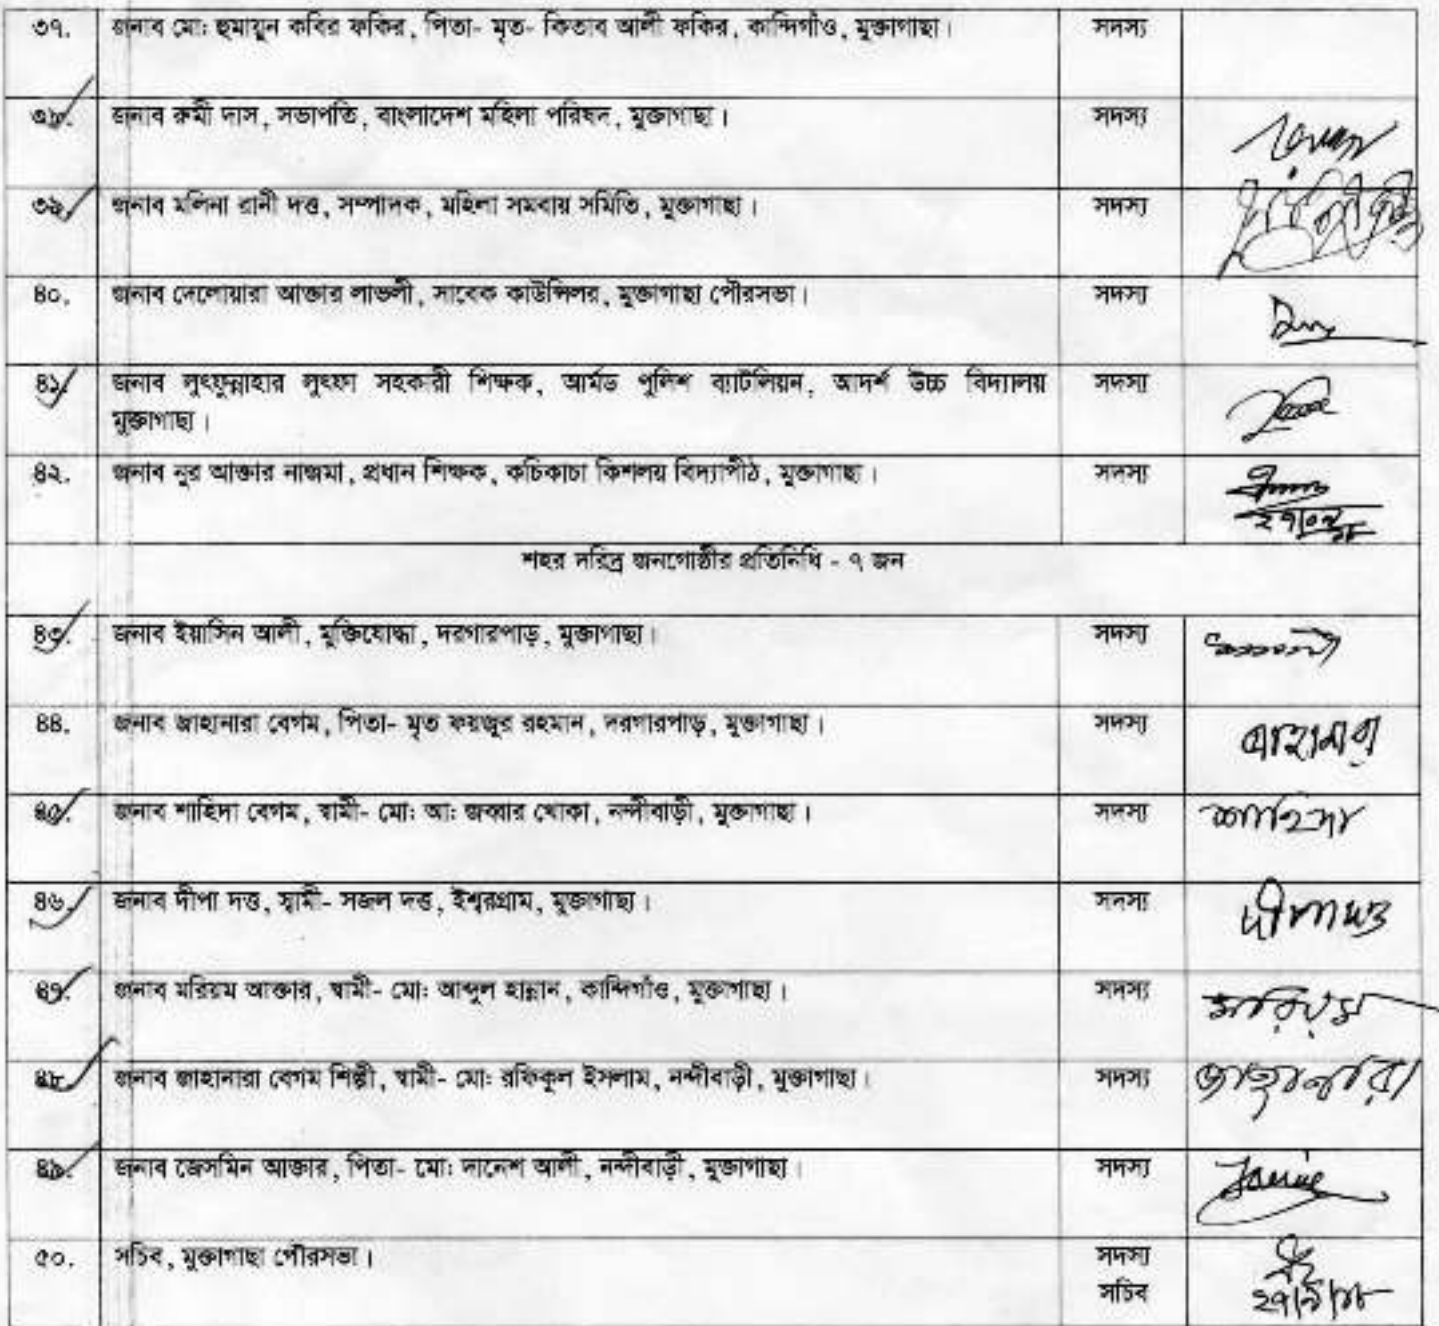 ৩৭. জনাব মো: হুমায়ুন কবির ফকির, পিতা- মৃত- কিতাব আলী ফকির, কান্দিগাঁও, মুক্তাগাছা। সদস্য
৩৮. জনাব রুমী দাস, সভাপতি, বাংলাদেশ মহিলা পরিষদ, মুক্তাগাছা। সদস্য
৩৯. জনাব মলিনা রানী দত্ত, সম্পাদক, মহিলা সমবায় সমিতি, মুক্তাগাছা। সদস্য
৪০. জনাব দেলোয়ারা আক্তার লাভলী, সাবেক কাউন্সিলর, মুক্তাগাছা পৌরসভা। সদস্য
৪১. জনাব লুৎফুন্নাহার লুৎফা সহকারী শিক্ষক, আর্মড পুলিশ ব্যাটলিয়ন, আদর্শ উচ্চ বিদ্যালয় সদস্য
মুক্তাগাছা।
৪২. জনাব নুর আক্তার নাজমা, প্রধান শিক্ষক, কচিকাচা কিশলয় বিদ্যাপীঠ, মুক্তাগাছা। সদস্য
শহর দরিদ্র জনগোষ্ঠীর প্রতিনিধি - ৭ জন
৪৩. জনাব ইয়াসিন আলী, মুক্তিযোদ্ধা, দরগারপাড়, মুক্তাগাছা। সদস্য
৪৪. জনাব জাহানারা বেগম, পিতা- মৃত ফয়জুর রহমান, দরগারপাড়, মুক্তাগাছা। সদস্য জাহানারা
৪৫. জনাব শাহিদা বেগম, স্বামী- মো: আ: জব্বার খোকা, নন্দীবাড়ী, মুক্তাগাছা। সদস্য শাহিদা
৪৬. জনাব দীপা দত্ত, স্বামী- সজল দত্ত, ইশ্বরগ্রাম, মুক্তাগাছা। সদস্য দীপা দত্ত
৪৭. জনাব মরিয়ম আক্তার, স্বামী- মো: আব্দুল হান্নান, কান্দিগাঁও, মুক্তাগাছা। সদস্য মরিয়ম
৪৮. জনাব জাহানারা বেগম শিল্পী, স্বামী- মো: রফিকুল ইসলাম, নন্দীবাড়ী, মুক্তাগাছা। সদস্য জাহানারা
৪৯. জনাব জেসমিন আক্তার, পিতা- মো: দানেশ আলী, নন্দীবাড়ী, মুক্তাগাছা। সদস্য
৫০. সচিব, মুক্তাগাছা পৌরসভা। সদস্য
সচিব